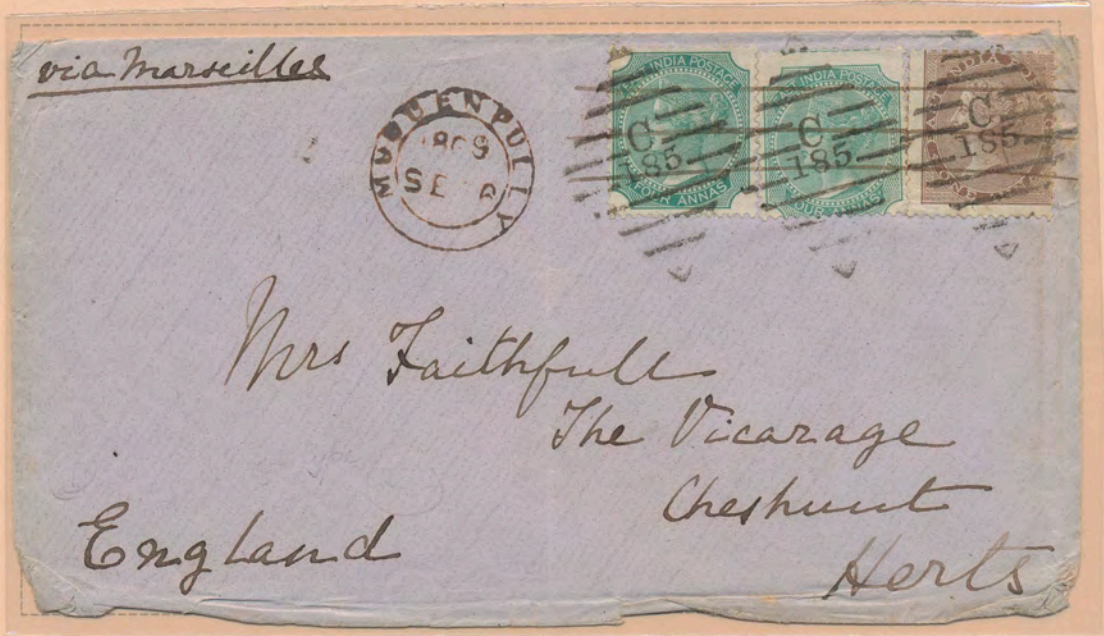 via Marseilles
MUDDENPULLY
1869
SE 6
EAST INDIA POSTAGE
C
185
FOUR ANNAS
EAST INDIA POSTAGE
C
185
FOUR ANNAS
EAST INDIA POSTAGE
C
185
ONE ANNA
Mrs Faithfull
The Vicarage
Cheshunt
Herts
England